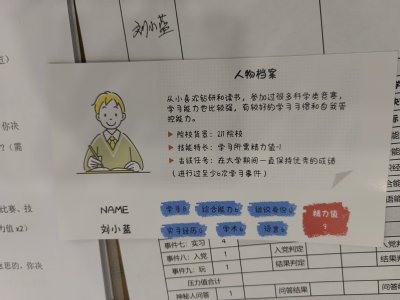 刘小蓝
人物档案
从小喜欢钻研和读书，参加过很多科学类竞赛，
学习能力也比较强，有较好的学习习惯和自我管
控能力。
院校背景：211院校
技能特长：学习所需精力值-1
省级任务：在大学期间一直保持优秀的成绩
（进行过至少6次学习事件）
NAME
刘小蓝
学习8
综合能力6
学习经历
学术6
语言6
精力值
9
你决
？（需
比赛、技
力值 x2）
思的，你决
事件七：实习 4
事件八：入党 1 入党判定
事件九：玩 1 结果判定
压力值合计
神秘人问答 问答结果